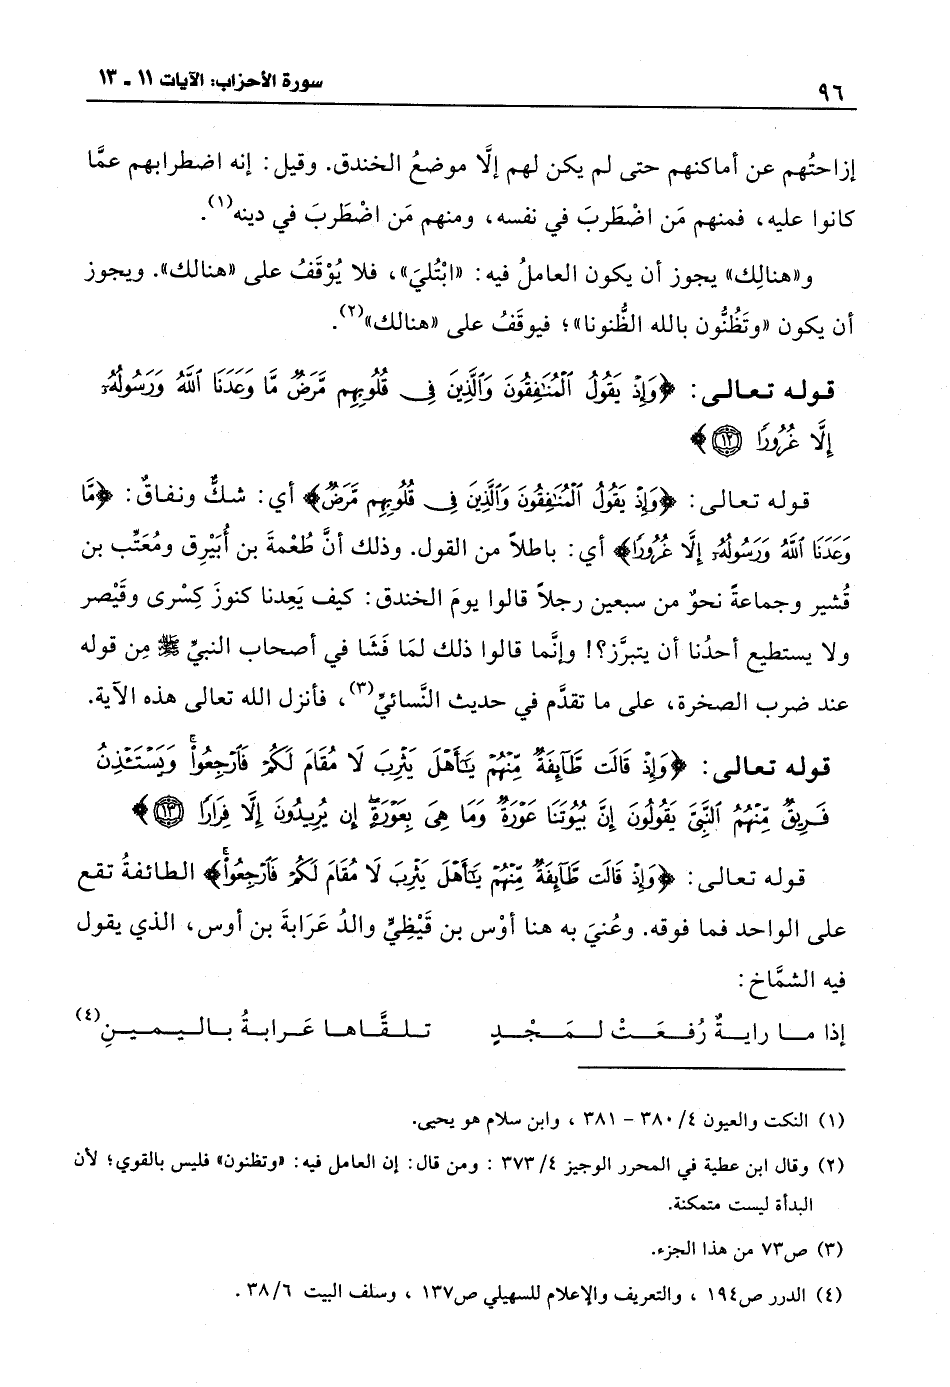 ٩٦
سورة الأحزاب: الآيات ١١ - ١٣
إزاحتُهم عن أماكنهم حتى لم يكن لهم إلَّا موضعُ الخندق. وقيل: إنه اضطرابهم عمَّا
كانوا عليه، فمنهم مَن اضْطَربَ في نفسه، ومنهم مَن اضْطَربَ في دينه(١).
و«هنالِك» يجوز أن يكون العاملُ فيه: «ابْتُليَ»، فلا يُوْقَفُ على «هنالك». ويجوز
أن يكون «وتَظُنُّون بالله الظُّنونا»؛ فيوقَفُ على «هنالك»(٢).
قوله تعالى: ﴿وَإِذْ يَقُولُ ٱلْمُنَٰفِقُونَ وَٱلَّذِينَ فِى قُلُوبِهِم مَّرَضٌ مَّا وَعَدَنَا ٱللَّهُ وَرَسُولُهُۥٓ
إِلَّا غُرُورًا ١٢﴾
قوله تعالى: ﴿وَإِذْ يَقُولُ ٱلْمُنَٰفِقُونَ وَٱلَّذِينَ فِى قُلُوبِهِم مَّرَضٌ﴾ أي: شكٌّ ونفاقٌ: ﴿مَّا
وَعَدَنَا ٱللَّهُ وَرَسُولُهُۥٓ إِلَّا غُرُورًا﴾ أي: باطلاً من القول. وذلك أنَّ طُعْمةَ بن أُبَيْرِق ومُعَتِّب بن
قُشير وجماعةً نحوٌ من سبعين رجلاً قالوا يومَ الخندق: كيف يَعِدنا كنوزَ كِسْرى وقَيْصر
ولا يستطيع أحدُنا أن يتبرَّز؟! وإنَّما قالوا ذلك لمَا فَشَا في أصحاب النبيِّ ﷺ مِن قوله
عند ضرب الصخرة، على ما تقدَّم في حديث النَّسائيِّ(٣)، فأنزل الله تعالى هذه الآية.
قوله تعالى: ﴿وَإِذْ قَالَت طَّآئِفَةٌ مِّنْهُمْ يَٰٓأَهْلَ يَثْرِبَ لَا مُقَامَ لَكُمْ فَٱرْجِعُوا۟ ۚ وَيَسْتَـْٔذِنُ
فَرِيقٌ مِّنْهُمُ ٱلنَّبِىَّ يَقُولُونَ إِنَّ بُيُوتَنَا عَوْرَةٌ وَمَا هِىَ بِعَوْرَةٍ ۖ إِن يُرِيدُونَ إِلَّا فِرَارًا ١٣﴾
قوله تعالى: ﴿وَإِذْ قَالَت طَّآئِفَةٌ مِّنْهُمْ يَٰٓأَهْلَ يَثْرِبَ لَا مُقَامَ لَكُمْ فَٱرْجِعُوا۟ۚ﴾ الطائفةُ تقع
على الواحد فما فوقه. وعُنيَ به هنا أوْس بن قَيْظِيِّ والدُ عَرَابةَ بن أوس، الذي يقول
فيه الشمَّاخ:
إذا ما رايةٌ رُفعَتْ لمَجْدٍ تلقَّاها عَرابةُ باليمينِ(٤)
(١) النكت والعيون ٤/ ٣٨٠ – ٣٨١ ، وابن سلام هو يحيى.
(٢) وقال ابن عطية في المحرر الوجيز ٤/ ٣٧٣ : ومن قال: إن العامل فيه: «وتظنون» فليس بالقوي؛ لأن
البدأة ليست متمكنة.
(٣) ص٧٣ من هذا الجزء.
(٤) الدرر ص١٩٤ ، والتعريف والإعلام للسهيلي ص١٣٧ ، وسلف البيت ٦/ ٣٨ .